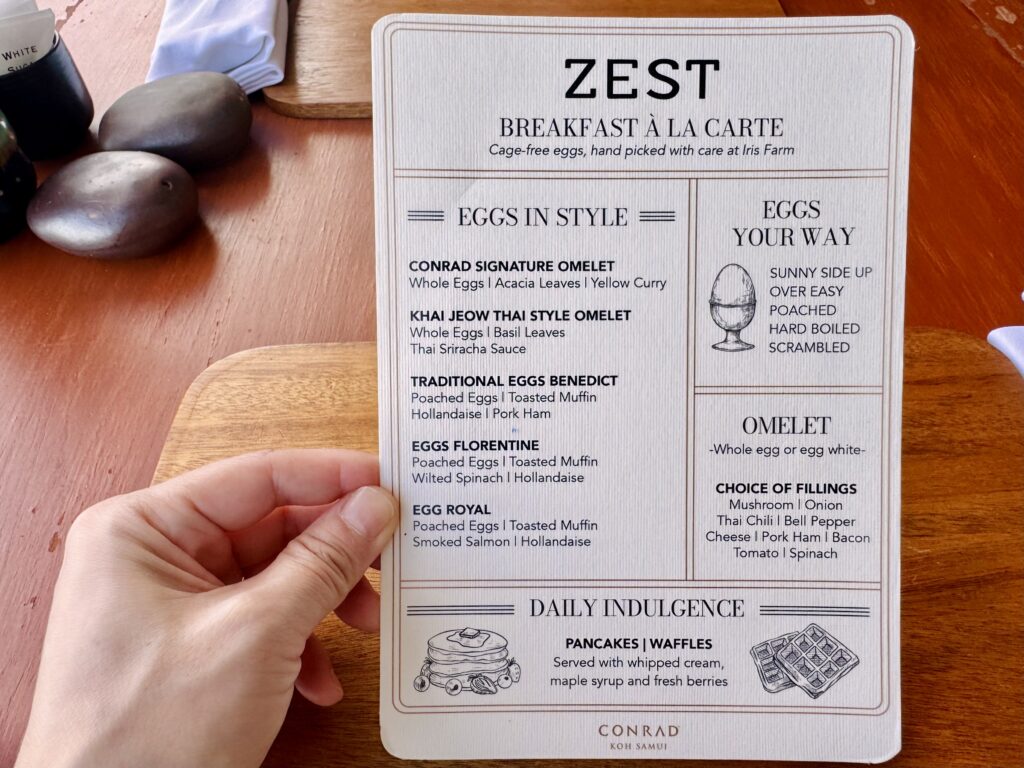 WHITE
ZEST
BREAKFAST À LA CARTE
Cage-free eggs, hand picked with care at Iris Farm
EGGS IN STYLE
CONRAD SIGNATURE OMELET
Whole Eggs | Acacia Leaves | Yellow Curry
KHAI JEOW THAI STYLE OMELET
Whole Eggs | Basil Leaves
Thai Sriracha Sauce
TRADITIONAL EGGS BENEDICT
Poached Eggs | Toasted Muffin
Hollandaise | Pork Ham
EGGS FLORENTINE
Poached Eggs | Toasted Muffin
Wilted Spinach | Hollandaise
EGG ROYAL
Poached Eggs | Toasted Muffin
Smoked Salmon | Hollandaise
EGGS
YOUR WAY
SUNNY SIDE UP
OVER EASY
POACHED
HARD BOILED
SCRAMBLED
OMELET
-Whole egg or egg white-
CHOICE OF FILLINGS
Mushroom | Onion
Thai Chili | Bell Pepper
Cheese | Pork Ham | Bacon
Tomato | Spinach
DAILY INDULGENCE
PANCAKES | WAFFLES
Served with whipped cream,
maple syrup and fresh berries
CONRAD
KOH SAMUI